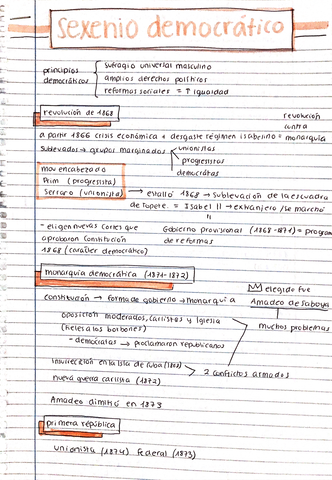 sexenio democrático
principios democráticos
sufragio universal masculino
amplios derechos políticos
reformas sociales = ↑ igualdad
revolución de 1868
revolución contra
a partir 1866 crisis económica + desgaste régimen isabelino = monarquía
Sublevados → grupos marginados
unionistas
progresistas
demócratas
mov encabezado
Prim (progresista)
Serrano (unionista)
→ estalló 1868 → Sublevación de la escuadra
de Topete. = Isabel II → extranjero / se marchó
- eligen nuevas Cortes que
aprobaron Constitución
1868 (carácter democrático)
Gobierno provisional (1868-1871) = program
de reformas
monarquía democrática (1871-1872)
elegido fue
constitución → forma de gobierno → monarquía
Amadeo de Saboya
oposición moderados, carlistas y Iglesia
(fieles a los borbones)
- demócratas → proclamaron republicanos
muchos problemas
insurrección en la isla de Cuba (1868)
nueva guerra carlista (1872)
2 conflictos armados
Amadeo dimitió en 1873
primera república
unionista (1874) federal (1873)